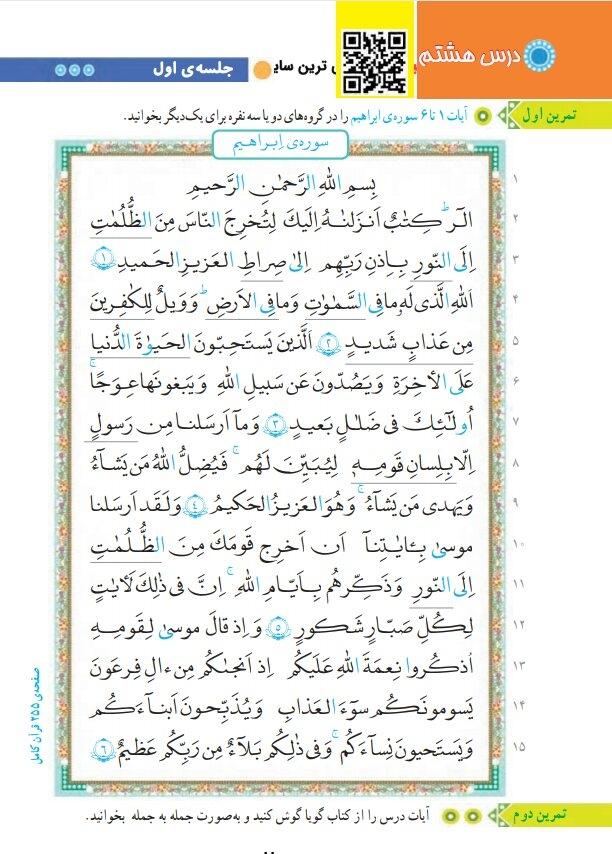 درس هشتم
ی ترین سای
جلسه‌ی اول
تمرین اول
آیات ۱ تا ۶ سوره‌ی ابراهیم را در گروه‌های دو یا سه نفره برای یک‌دیگر بخوانید.
سوره‌ی اِبراهـیم
۱ بِسمِ اللهِ الرَّحمٰنِ الرَّحیمِ
۲ الٓر ۚ كِتٰبٌ اَنزَلنٰهُ اِلَيكَ لِتُخرِجَ النّاسَ مِنَ الظُّلُمٰتِ
۳ اِلَى النّورِ بِاِذنِ رَبِّهِم اِلىٰ صِراطِ العَزيزِ الحَميدِ ۱
۴ اَللهِ الَّذى لَهُ ما فِى السَّمٰوٰتِ وَ ما فِى الاَرضِ ۗ وَ وَيلٌ لِلكٰفِرينَ
۵ مِن عَذابٍ شَديدٍ ۲ اَلَّذينَ يَستَحِبّونَ الحَيوٰةَ الدُّنيا
۶ عَلَى الأخِرَةِ وَ يَصُدّونَ عَن سَبيلِ اللهِ وَ يَبغونَها عِوَجًا ۚ
۷ اُولٰئِكَ فى ضَلٰلٍ بَعيدٍ ۳ وَ ما اَرسَلنا مِن رَسولٍ
۸ اِلّا بِلِسانِ قَومِهٖ لِيُبَيِّنَ لَهُم ۖ فَيُضِلُّ اللهُ مَن يَشآءُ
۹ وَ يَهدى مَن يَشآءُ ۚ وَ هُوَ العَزيزُ الحَكيمُ ٤ وَ لَقَد اَرسَلنا
۱۰ موسىٰ بِـٔايٰتِنآ اَن اَخرِج قَومَكَ مِنَ الظُّلُمٰتِ
۱۱ اِلَى النّورِ وَ ذَكِّرهُم بِاَيّامِ اللهِ ۚ اِنَّ فى ذٰلِكَ لَأيٰتٍ
۱۲ لِكُلِّ صَبّارٍ شَكورٍ ۵ وَ اِذ قالَ موسىٰ لِقَومِهِ
۱۳ اذكُروا نِعمَةَ اللهِ عَلَيكُم اِذ اَنجٰكُم مِن ءالِ فِرعَونَ
۱۴ يَسومونَكُم سوٓءَ العَذابِ وَ يُذَبِّحونَ اَبنآءَكُم
۱۵ وَ يَستَحيونَ نِسآءَكُم ۚ وَ فى ذٰلِكُم بَلآءٌ مِن رَبِّكُم عَظيمٌ ٦
صفحه‌ی ۲۵۵ قرآن کامل
تمرین دوم
آیات درس را از کتاب گویا گوش کنید و به‌صورت جمله به جمله بخوانید.